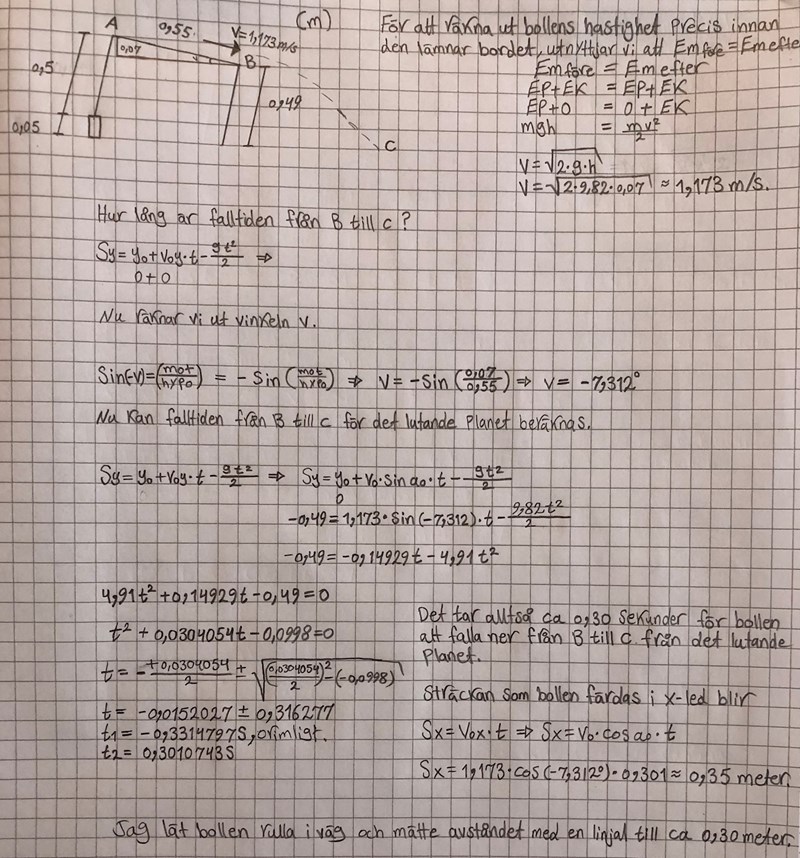 A
0,55
V=1,173 m/s
(m)
0,07
B
0,5
0,49
0,05
C
För att räkna ut bollens hastighet precis innan
den lämnar bordet, utnyttjar vi att Emföre = Emefter
Emföre = Emefter
EP+EK = EP+EK
EP+0 = 0+EK
mgh = mv²/2
V=√2·g·h
V=√2·9,82·0,07 ≈ 1,173 m/s.
Hur lång är falltiden från B till C?
Sy= y₀+v₀y·t-gt²/2 ⇒
0+0
Nu räknar vi ut vinkeln v.
Sin(-v)=(mot/hypo) = -Sin(mot/hypo) ⇒ V= -Sin(0,07/0,55) ⇒ V= -7,312°
Nu kan falltiden från B till C för det lutande planet beräknas.
Sy=y₀+v₀y·t-gt²/2 ⇒ Sy=y₀+v₀·sin a₀·t--gt²/2
0
-0,49=1,173·sin(-7,312)·t-9,82t²/2
-0,49=-0,14929t-4,91t²
4,91t²+0,14929t-0,49=0
t²+0,0304054t-0,0998=0
t= -+0,0304054/2 ± √(0,0304054/2)²-(-0,0998)
t= -0,0152027 ± 0,316277
t₁= -0,3314797s, orimligt.
t₂= 0,3010743s
Det tar alltså ca 0,30 sekunder för bollen
att falla ner från B till C från det lutande
planet.
Sträckan som bollen färdas i x-led blir
Sx=V₀x·t ⇒ Sx=V₀·cos a₀·t
Sx=1,173·cos(-7,312°)·0,301≈0,35 meter.
Jag lät bollen rulla iväg och mätte avståndet med en linjal till ca 0,30 meter.